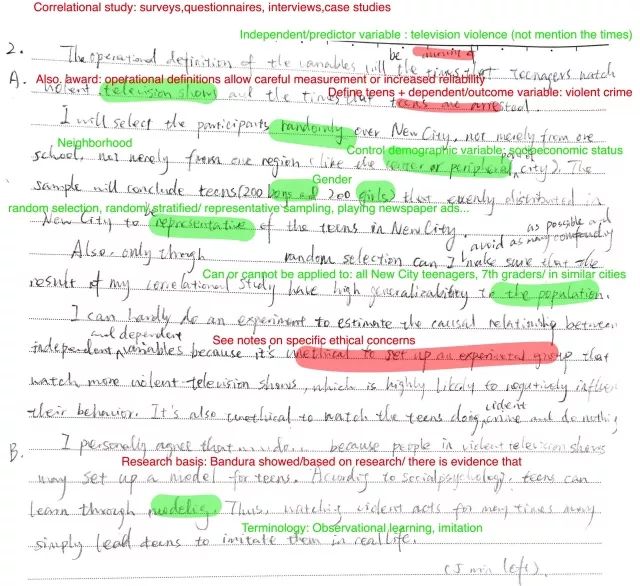 Correlational study: surveys,questionnaires, interviews,case studies
Independent/predictor variable : television violence (not mention the times)
2. The operational definition of the variables will be the times that teenagers watch
A. Also, award: operational definitions allow careful measurement or increased reliability
violent television shows and the times that teens are arrested.
Define teens + dependent/outcome variable: violent crime
I will select the participants randomly over New City, not merely from one
Neighborhood
Control demographic variable: socioeconomic status
school, not merely from one region (like the center or peripheral part of city). The
Gender
sample will conclude teens (200 boys and 200 girls) that evenly distributed in
random selection, random/ stratified/ representative sampling, playing newspaper ads...
New City to be representative of the teens in New City.
as possible and avoid as many confounding
Also, only through random selection can I make sure that the
Can or cannot be applied to: all New City teenagers, 7th graders/ in similar cities
result of my correlational study have high generalizability to the population.
I can hardly do an experiment to estimate the causal relationship between
and dependent
See notes on specific ethical concerns
independent variables because it's unethical to set up an experimental group that
watch more violent television shows, which is highly likely to negatively influence
their behavior. It's also unethical to watch the teens doing violent crime and do nothing
B. I personally agree that because people in violent television shows
Research basis: Bandura showed/based on research/ there is evidence that
may set up a model for teens. According to Social psychology, teens can
learn through modeling. Thus, watching violent acts for many times may
Terminology: Observational learning, imitation
simply lead teens to imitate them in real life.
(5 min left).